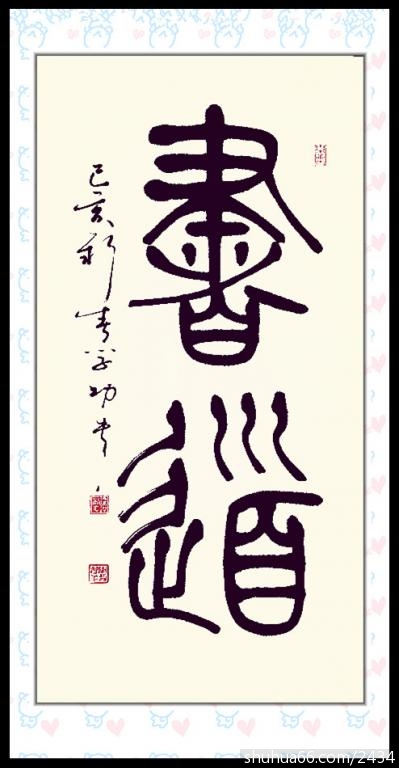 書道
己亥新春学功書
shuhua66.com/2434